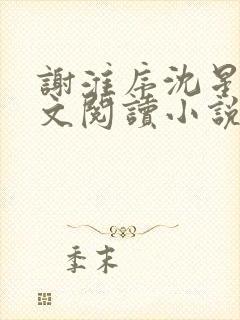 謝淮序沈星
文閱讀小說
季末